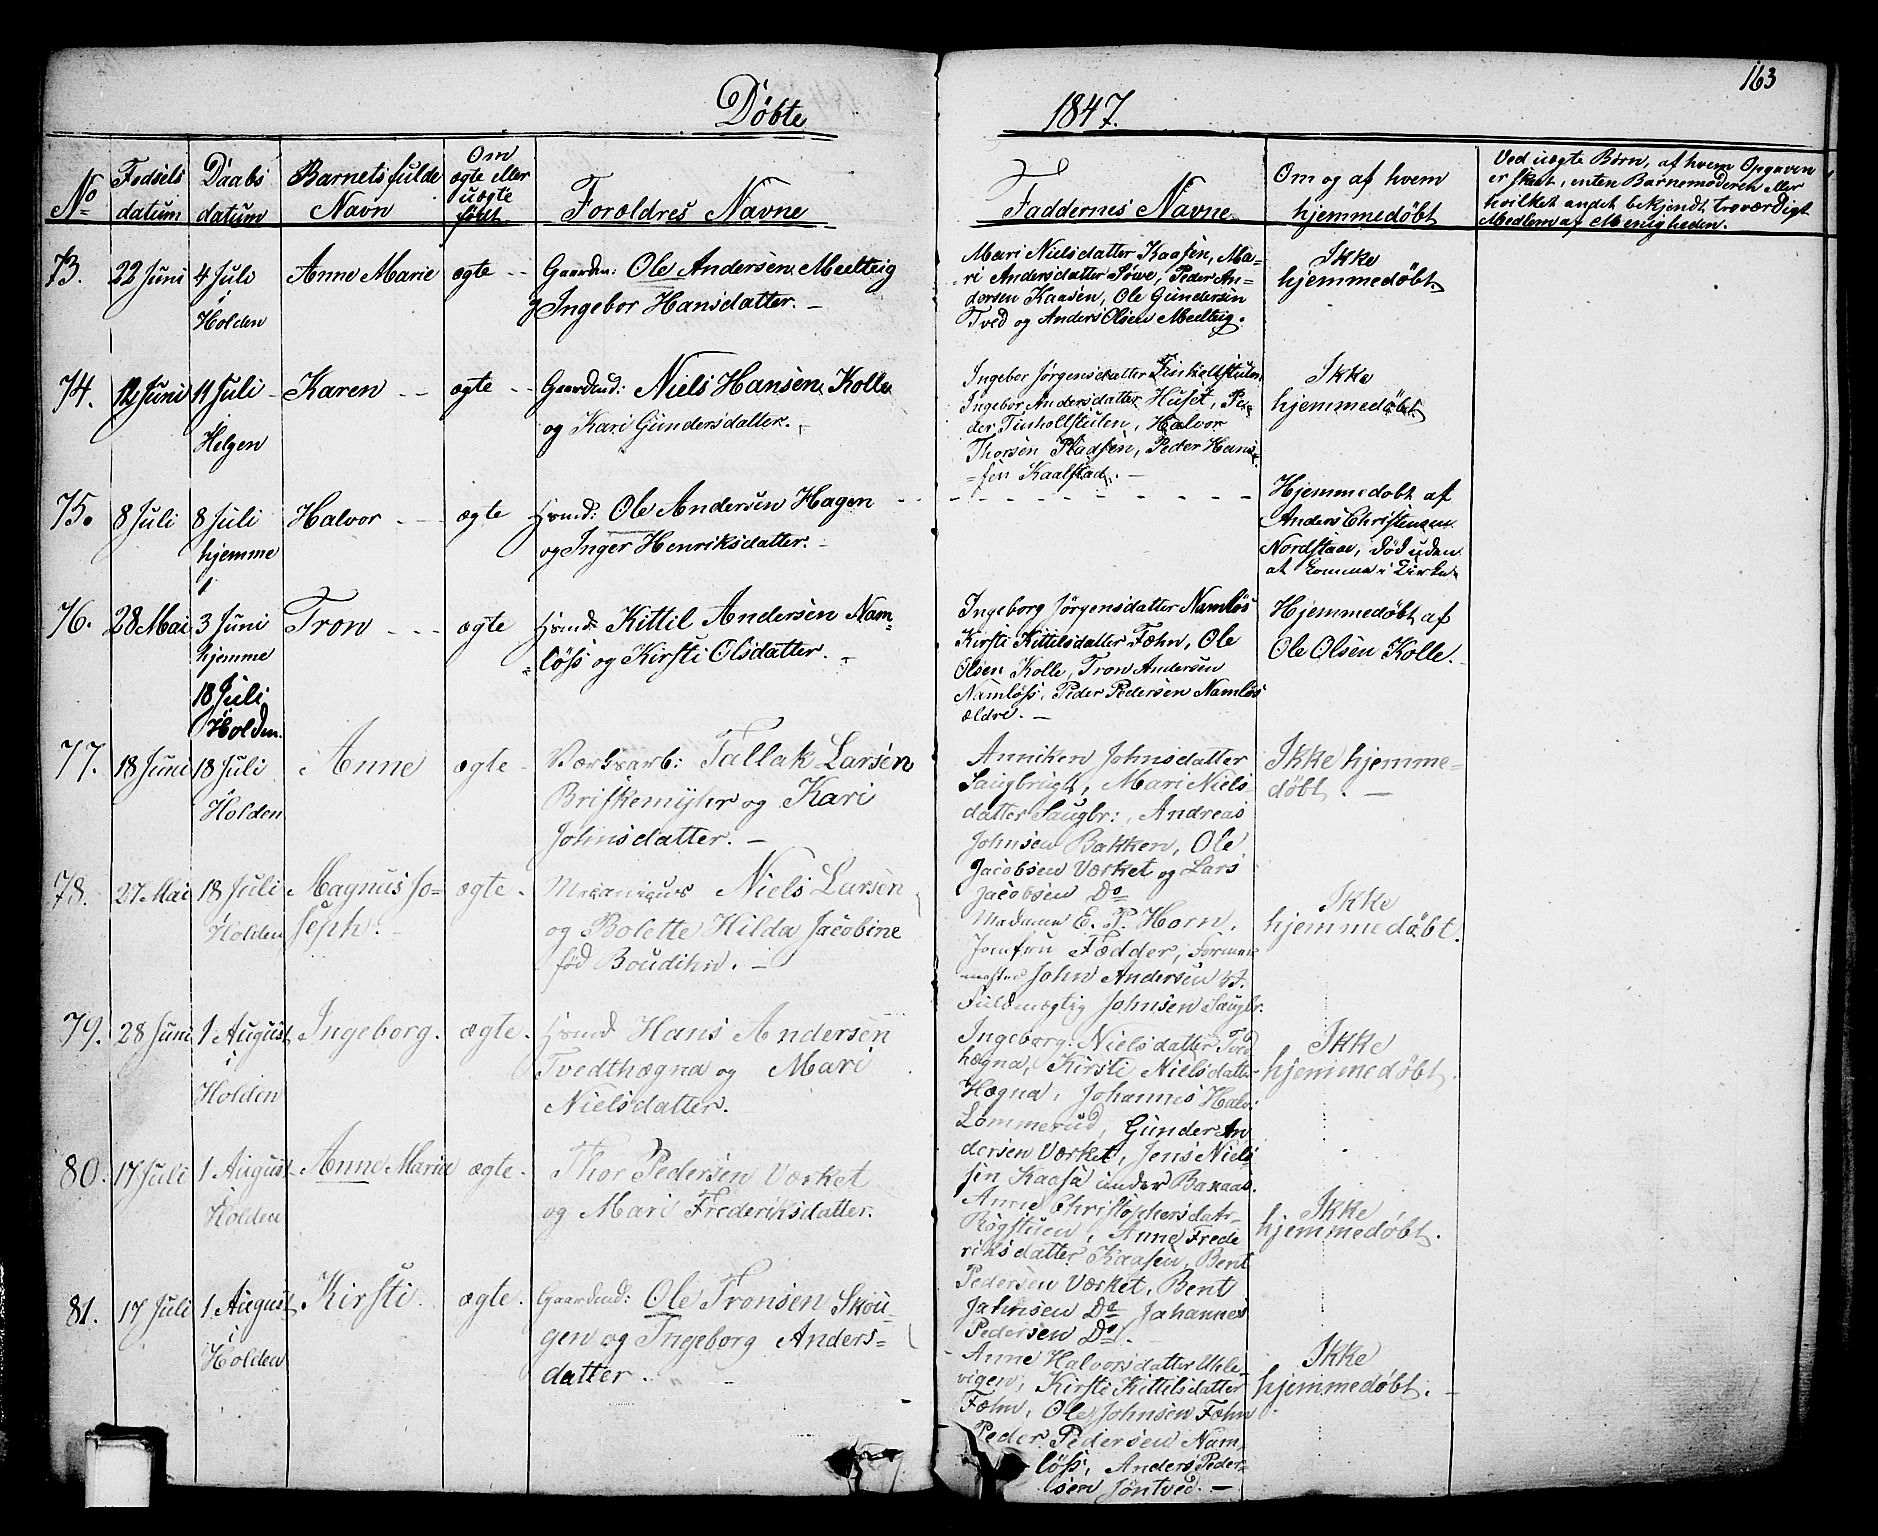 163
Döbte 1847.
No
Fødsels datum
Daabs datum
Barnets fulde Navn
Om ægte eller uægte født
Forældres Navne
Faddernes Navne
Om og af hvem hjemmedøbt
Ved uægte Børn, af hvem Opgaven
er skeet, enten Barnemoderen eller
hvilket andet bekjendt troværdigt
Medlem af Menigheden.
73. 22 Juni 4 Juli i Holden Anne Marie ægte
Gaardm: Ole Andersen Melteig
og Ingebor Hansdatter.
Mari Nielsdatter Kaasen, Ma-
ri Andersdatter Sowe, Peder An-
dersen Kaasen, Ole Gundersen
Tved og Anders Olsen Melteig.
Ikke
hjemmedøbt.
74. 12 Juni 11 Juli i Helgen Karen ægte
Gaardmd: Niels Hansen Kolle
og Kari Gundersdatter.
Ingebor Jörgensdatter
Ingebor Andersdatter Huset, Pe-
der Tinholtstulen, Halvor
Thorsen Pladsen, Peder Han-
sen Kaalstad.
Ikke
hjemmedøbt.
75. 8 Juli 8 Juli hjemme Halvor ægte
Hsmd: Ole Andersen Hagen
og Inger Henriksdatter.
Hjemmedøbt af
Anders Christensen
Nordstaae, død uden
at komme i Kirke
76. 28 Mai 3 Juni hjemme 18 Juli Holden. Tron ægte
Hsmd: Kittil Andersen Nam-
löss og Kirsti Olsdatter.
Ingeborg Jörgensdatter Namløs
Kirsti Kittilsdatter Fæhn, Ole
Olsen Kolle, Tron Andersen
Namlöss, Peder Pedersen Namløs
ældre.
Hjemmedøbt af
Ole Olsen Kolle.
77. 18 Juni 18 Juli i Holden Anne ægte
Værksarb: Tallak Larsen
Briskemyhr og Kari
Johnsdatter.
Anniken Johnsdatter
Saugbrugt, Mari Niels-
datter Saugbr:, Andreas
Johnsen Bakken, Ole
Jacobsen Værket og Lars
Jacobsen Do
Ikke hjemme-
døbt.
78. 27 Mai 18 Juli i Holden Magnus Jo-
seph. ægte
Mecanicus Niels Larsen
og Bolette Hilda Jacobine
fød Boudihn.
Madame E. P. Horn,
Jomfru Fædder, Former
mester John Andersen
Fuldmægtig Johnsen Saugbr.
Ikke
hjemmedøbt.
79. 28 Juni 1 August i Holden Ingeborg. ægte
Hsmd Hans Andersen
Tvedthægna og Mari
Nielsdatter.
Ingeborg Nielsdatter Tved
hægna, Kirsti Nielsdatter
Hægna, Johannes Halv.
Lommerud, Gunder An
dersen Værket, Jens Niels-
sen Kaasa under Baxaas.
Ikke
hjemmedøbt.
80. 17 Juli 1 August i Holden Anne Maria ægte
Thor Pedersen Værket
og Mari Frederiksdatter.
Anne Christophersdatr-
Røgstuen, Anne Frede
riksdatter Kaasen, Bent
Pedersen Værket, Bent
Johnsen Do Johannes
Pedersen Do.
Ikke
hjemmedøbt.
81. 17 Juli 1 August i Holden Kirsti. ægte
Gaardmd: Ole Tronsen Skou-
gen og Ingeborg Anders-
datter.
Anne Halvorsdatter Uhle-
vigen, Kirsti Kittilsdatter
Fæhn, Ole Johnsen Fæhn
Peder Pedersen Nam-
löss, Anders Peder-
sen Jöntved.
Ikke
hjemmedøbt.